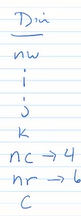 Din
nw
i
i
j
k
nc → 4
nr → 6
C